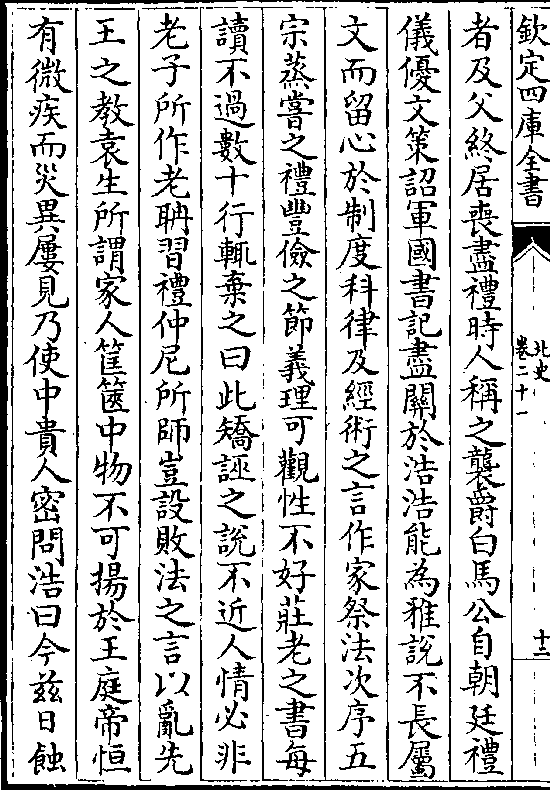 欽定四庫全書
北史
卷二十一
十二
者及父終居喪盡禮時人稱之襲爵白馬公自朝廷禮
儀優文策詔軍國書記盡關於浩浩能為雅說不長屬
文而留心於制度科律及經術之言作家祭法次序五
宗蒸嘗之禮豐儉之節義理可觀性不好莊老之書每
讀不過數十行輒棄之曰此矯誣之說不近人情必非
老子所作老聃習禮仲尼所師豈設敗法之言以亂先
王之教袁生所謂家人筐篋中物不可揚於王庭帝恒
有微疾而災異屢見乃使中貴人密問浩曰今兹日蝕